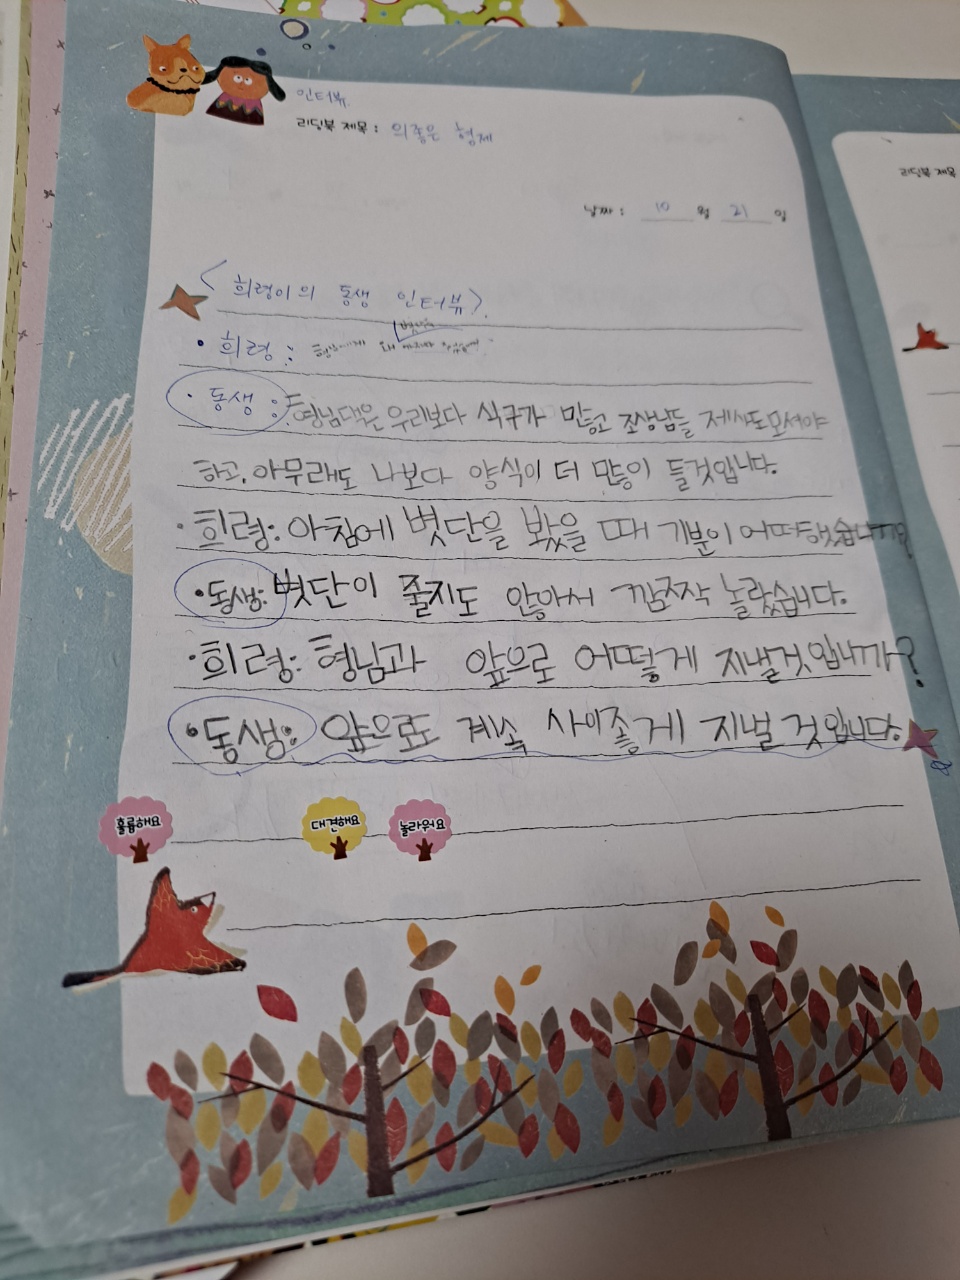 인터뷰.
리딩북 제목 : 의좋은 형제
날짜 : 10 월 21 일
<희령이의 동생 인터뷰>.
· 희령 : 형님에게 왜 볏단을
· 동생 : 형님댁은 우리보다 식구가 많고 조상님들 제사도모셔야
하고, 아무래도 나보다 양식이 더 많이 들것입니다.
· 희령: 아침에 볏단을 봤을 때 기분이 어떠했습니까?
· 동생: 볏단이 줄지도 않아서 깜짝 놀랐습니다.
· 희령: 형님과 앞으로 어떻게 지낼것입니까?
· 동생: 앞으로도 계속 사이좋게 지낼 것입니다.
훌륭해요 대견해요 놀라워요
리딩북 제목